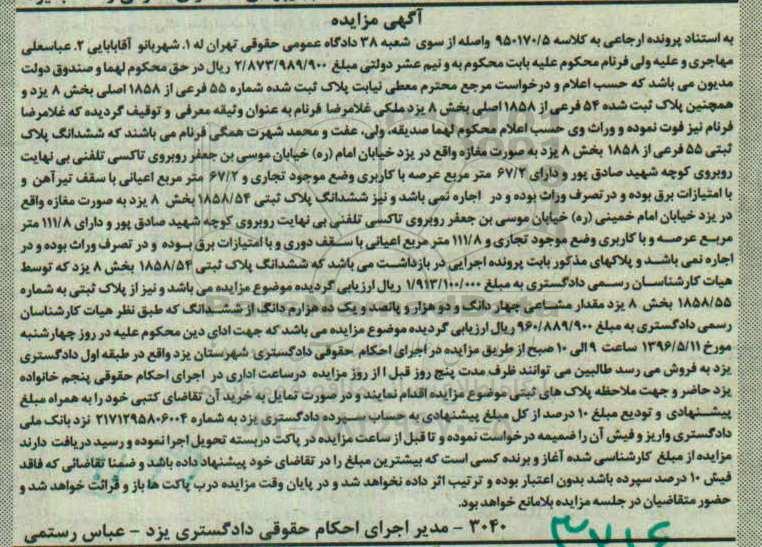 آگهی مزایده
به استناد پرونده ارجاعی به کلاسه ۹۵۰۱۷۰/۵ واصله از سوی شعبه ۳۸ دادگاه عمومی حقوقی تهران له ۱. شهربانو آقابابایی ۲. عباسعلی
مهاجری و علیه ولی فرنام محکوم علیه بابت محکوم به و نیم عشر دولتی مبلغ ۲/۸۷۳/۹۸۹/۹۰۰ ریال در حق محکوم لهما و صندوق دولت
مدیون می باشد که حسب اعلام و درخواست مرجع محترم معطی نیابت پلاک ثبت شده شماره ۵۵ فرعی از ۱۸۵۸ اصلی بخش ۸ یزد و
همچنین پلاک ثبت شده ۵۴ فرعی از ۱۸۵۸ اصلی بخش ۸ یزد ملکی غلامرضا فرنام به عنوان وثیقه معرفی و توقیف گردیده که غلامرضا
فرنام نیز فوت نموده و وراث وی حسب اعلام محکوم لهما صدیقه، ولی، عفت و محمد شهرت همگی فرنام می باشند که ششدانگ پلاک
ثبتی ۵۵ فرعی از ۱۸۵۸ بخش ۸ یزد به صورت مغازه واقع در یزد خیابان امام (ره) خیابان موسی بن جعفر روبروی تاکسی تلفنی بی نهایت
روبروی کوچه شهید صادق پور و دارای ۶۷/۲ متر مربع عرصه با کاربری وضع موجود تجاری و ۶۷/۲ متر مربع اعیانی با سقف تیرآهن و
با امتیازات برق بوده و در تصرف وراث بوده و در اجاره نمی باشد و نیز ششدانگ پلاک ثبتی ۱۸۵۸/۵۴ بخش ۸ یزد به صورت مغازه واقع
در یزد خیابان امام خمینی (ره) خیابان موسی بن جعفر روبروی تاکسی تلفنی بی نهایت روبروی کوچه شهید صادق پور و دارای ۱۱۱/۸ متر
مربع عرصه و با کاربری وضع موجود تجاری و ۱۱۱/۸ متر مربع اعیانی با سقف دوری و با امتیازات برق بوده و در تصرف وراث بوده و در
اجاره نمی باشد و پلاکهای مذکور بابت پرونده اجرایی در بازداشت می باشد که ششدانگ پلاک ثبتی ۱۸۵۸/۵۴ بخش ۸ یزد که توسط
هیات کارشناسان رسمی دادگستری به مبلغ ۱/۹۱۳/۱۰۰/۰۰۰ ریال ارزیابی گردیده موضوع مزایده می باشد و نیز از پلاک ثبتی به شماره
۱۸۵۸/۵۵ بخش ۸ یزد مقدار مشاعی چهار دانگ و دو هزار و پانصد و یک ده هزارم دانگ از ششدانگ که طبق نظر هیات کارشناسان
رسمی دادگستری به مبلغ ۹۶۰/۸۸۹/۹۰۰ ریال ارزیابی گردیده موضوع مزایده می باشد که جهت ادای دین محکوم علیه در روز چهارشنبه
مورخ ۱۳۹۶/۵/۱۱ ساعت ۹ الی ۱۰ صبح از طریق مزایده در اجرای احکام حقوقی دادگستری شهرستان یزد واقع در طبقه اول دادگستری
یزد به فروش می رسد طالبین می توانند ظرف مدت پنج روز قبل ا از روز مزایده درساعت اداری در اجرای احکام حقوقی پنجم خانواده
یزد حاضر و جهت ملاحظه پلاک های ثبتی موضوع مزایده اقدام نمایند و در صورت تمایل به خرید آن تقاضای کتبی خود را به همراه مبلغ
پیشنهادی و تودیع مبلغ ۱۰ درصد از کل مبلغ پیشنهادی به حساب سپرده دادگستری یزد به شماره ۲۱۷۱۲۹۵۸۰۶۰۰۴ نزد بانک ملی
دادگستری واریز و فیش آن را ضمیمه درخواست نموده و تا قبل از ساعت مزایده در پاکت دربسته تحویل اجرا نموده و رسید دریافت دارند
مزایده از مبلغ کارشناسی شده آغاز و برنده کسی است که بیشترین مبلغ را در تقاضای خود پیشنهاد داده باشد و ضمنا تقاضائی که فاقد
فیش ۱۰ درصد سپرده باشد بدون اعتبار بوده و ترتیب اثر داده نخواهد شد و در پایان وقت مزایده درب پاکت ها باز و قرائت خواهد شد و
حضور متقاضیان در جلسه مزایده بلامانع خواهد بود.
۳۰۴۰ - مدیر اجرای احکام حقوقی دادگستری یزد - عباس رستمی